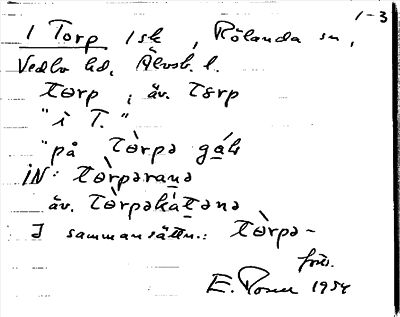 1-3
1 Torp 1sk, Rölanda sn,
Vedbo hd, Älvsb. l.
tɵrp, äv. tɞrp
"i T."
"på tɵ̀rpə gáḷs
IN: tɵ̀rpəraṇa
äv. tɵ̀rpəkátəna
I sammansättn.: tɵ̀rpə-
förs.
E. 1954